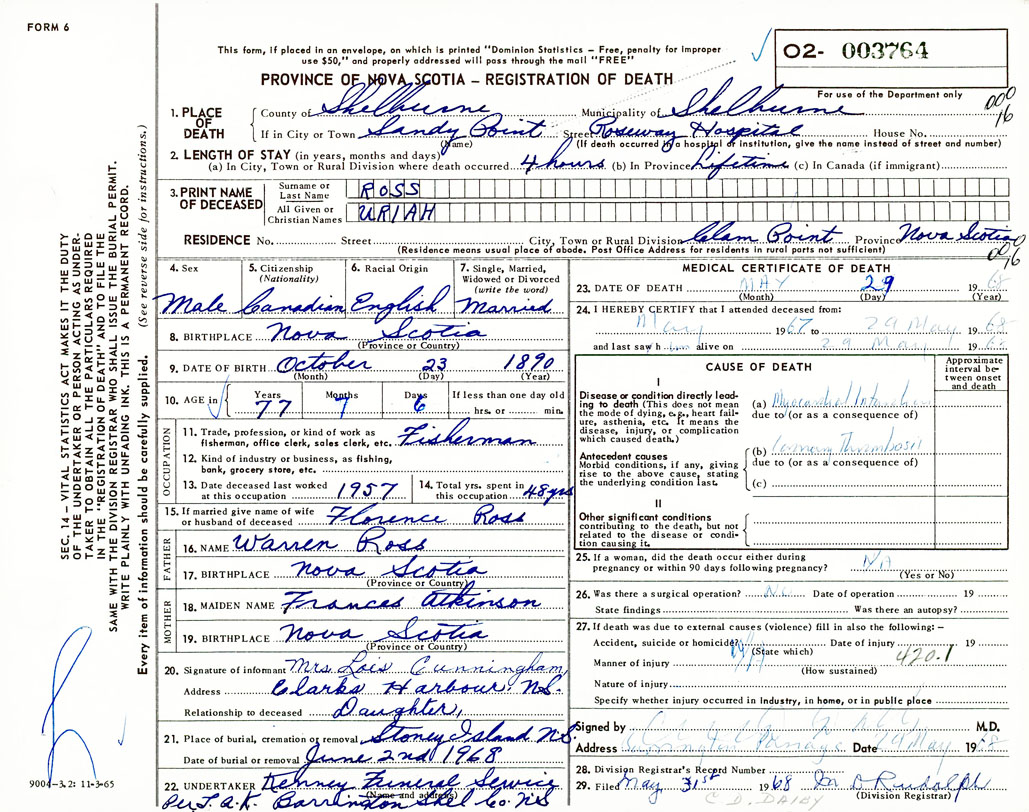 FORM 6
This form, if placed in an envelope, on which is printed "Dominion Statistics – Free, penalty for improper
use $50," and properly addressed will pass through the mail "FREE"
02- 003764
PROVINCE OF NOVA SCOTIA – REGISTRATION OF DEATH
For use of the Department only
000
16
1. PLACE OF DEATH
County of Shelburne Municipality of Shelburne
If in City or Town Sandy Point Street Roseway Hospital House No.
(Name) (If death occurred in a hospital or institution, give the name instead of street and number)
2. LENGTH OF STAY (in years, months and days)
(a) In City, Town or Rural Division where death occurred 4 hours (b) In Province Lifetime (c) In Canada (if immigrant)
3. PRINT NAME OF DECEASED
Surname or Last Name ROSS
All Given or Christian Names URIAH
RESIDENCE No. Street City, Town or Rural Division Clam Point Province Nova Scotia
(Residence means usual place of abode. Post Office Address for residents in rural parts not sufficient)
4. Sex 5. Citizenship (Nationality) 6. Racial Origin 7. Single, Married, Widowed or Divorced (write the word)
Male Canadian English Married
8. BIRTHPLACE Nova Scotia
(Province or Country)
9. DATE OF BIRTH October 23 1890
(Month) (Day) (Year)
10. AGE in Years Months Days If less than one day old
77 7 6 hrs. or min.
OCCUPATION
11. Trade, profession, or kind of work as
fisherman, office clerk, sales clerk, etc. Fisherman
12. Kind of industry or business, as fishing,
bank, grocery store, etc.
13. Date deceased last worked at this occupation 1957 14. Total yrs. spent in this occupation 48 yrs
15. If married give name of wife
or husband of deceased Florence Ross
FATHER
16. NAME Warren Ross
17. BIRTHPLACE Nova Scotia
(Province or Country)
MOTHER
18. MAIDEN NAME Frances Atkinson
19. BIRTHPLACE Nova Scotia
(Province or Country)
20. Signature of informant Mrs. Lois Cunningham,
Address Clarks Harbour, N.S.
Relationship to deceased Daughter,
21. Place of burial, cremation or removal Stoney Island N.S.
Date of burial or removal June 2nd 1968
22. UNDERTAKER Kenney Funeral Service
(Name and address)
Barrington Shel Co. N.S
MEDICAL CERTIFICATE OF DEATH
23. DATE OF DEATH MAY 29 1968
(Month) (Day) (Year)
24. I HEREBY CERTIFY that I attended deceased from:
May 1967 to 29 May 1968
and last saw h alive on 29 May 1968
CAUSE OF DEATH
Approximate interval between onset and death
I
Disease or condition directly leading to death (This does not mean
the mode of dying, e.g., heart failure, asthenia, etc. It means the
disease, injury, or complication
which caused death.)
(a) Myocardial
due to (or as a consequence of)
Antecedent causes
Morbid conditions, if any, giving
rise to the above cause, stating
the underlying condition last.
(b) Coronary Thrombosis
due to (or as a consequence of)
(c)
II
Other significant conditions
contributing to the death, but not
related to the disease or condition causing it.
25. If a woman, did the death occur either during
pregnancy or within 90 days following pregnancy?
(Yes or No)
26. Was there a surgical operation? No Date of operation 19
State findings Was there an autopsy?
27. If death was due to external causes (violence) fill in also the following: –
Accident, suicide or homicide? Date of injury 19
(State which) 420.1
Manner of injury
(How sustained)
Nature of injury
Specify whether injury occurred in Industry, in home, or in public place
Signed by M.D.
Address Barrington Passage Date 29 May 1968
28. Division Registrar's Record Number
29. Filed May 31st 1968 D Rudolph
(Division Registrar)
SEC. 14 – VITAL STATISTICS ACT MAKES IT THE DUTY
OF THE UNDERTAKER OR PERSON ACTING AS UNDER-
TAKER TO OBTAIN ALL THE PARTICULARS REQUIRED
IN THE "REGISTRATION OF DEATH" AND TO FILE THE
SAME WITH THE DIVISION REGISTRAR WHO SHALL ISSUE THE BURIAL PERMIT.
WRITE PLAINLY WITH UNFADING INK. THIS IS A PERMANENT RECORD.
Every item of information should be carefully supplied. (See reverse side for instructions.)
9004–3.2: 11-3-65